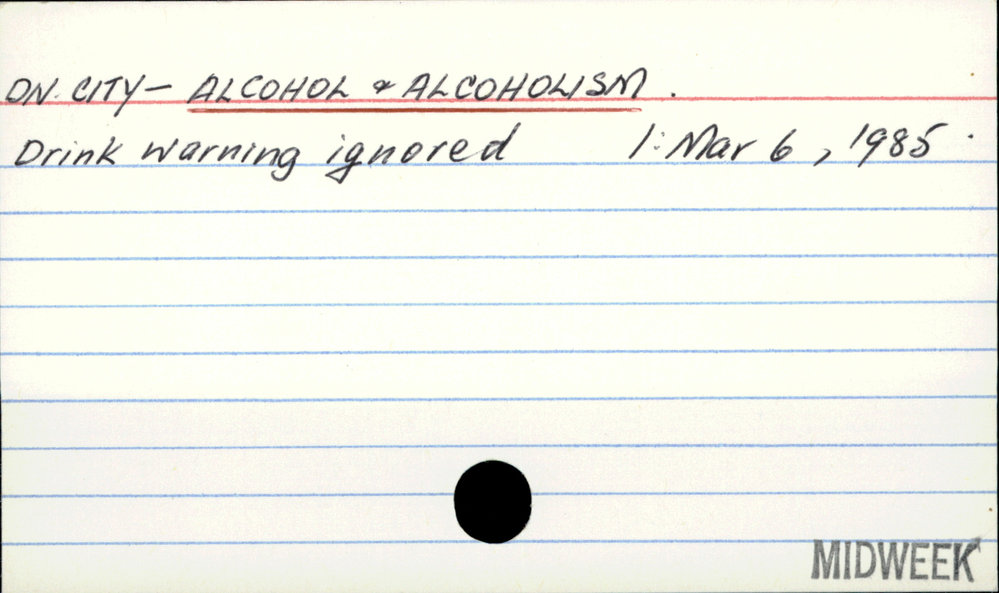 DN. CITY - ALCOHOL & ALCOHOLISM.
Drink warning ignored 1: Mar 6, 1985.
MIDWEEK